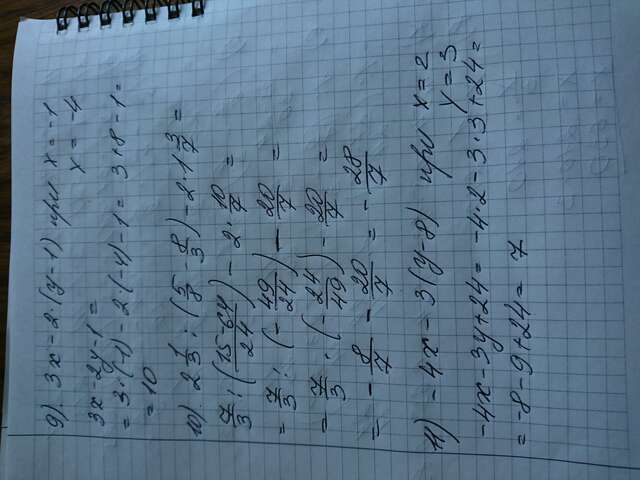 9). 3x - 2·(y-1) при x = -1
x = -4
3x - 2y - 1 =
= 3·(-1) - 2·(-4) - 1 = 3 + 8 - 1 =
= 10
10). 2 1/3 : (5/8 - 8/3) - 2·1 3/7 =
7/3 : (15-64/24) - 2·10/7 =
= 7/3 : (-49/24) - 20/7 =
= 7/3 · (-24/49) - 20/7 =
= -8/7 - 20/7 = -28/7
11) -4x - 3(y-8) при x = 2
y = 3
-4x - 3y + 24 = -4·2 - 3·3 + 24 =
= -8 - 9 + 24 = 7